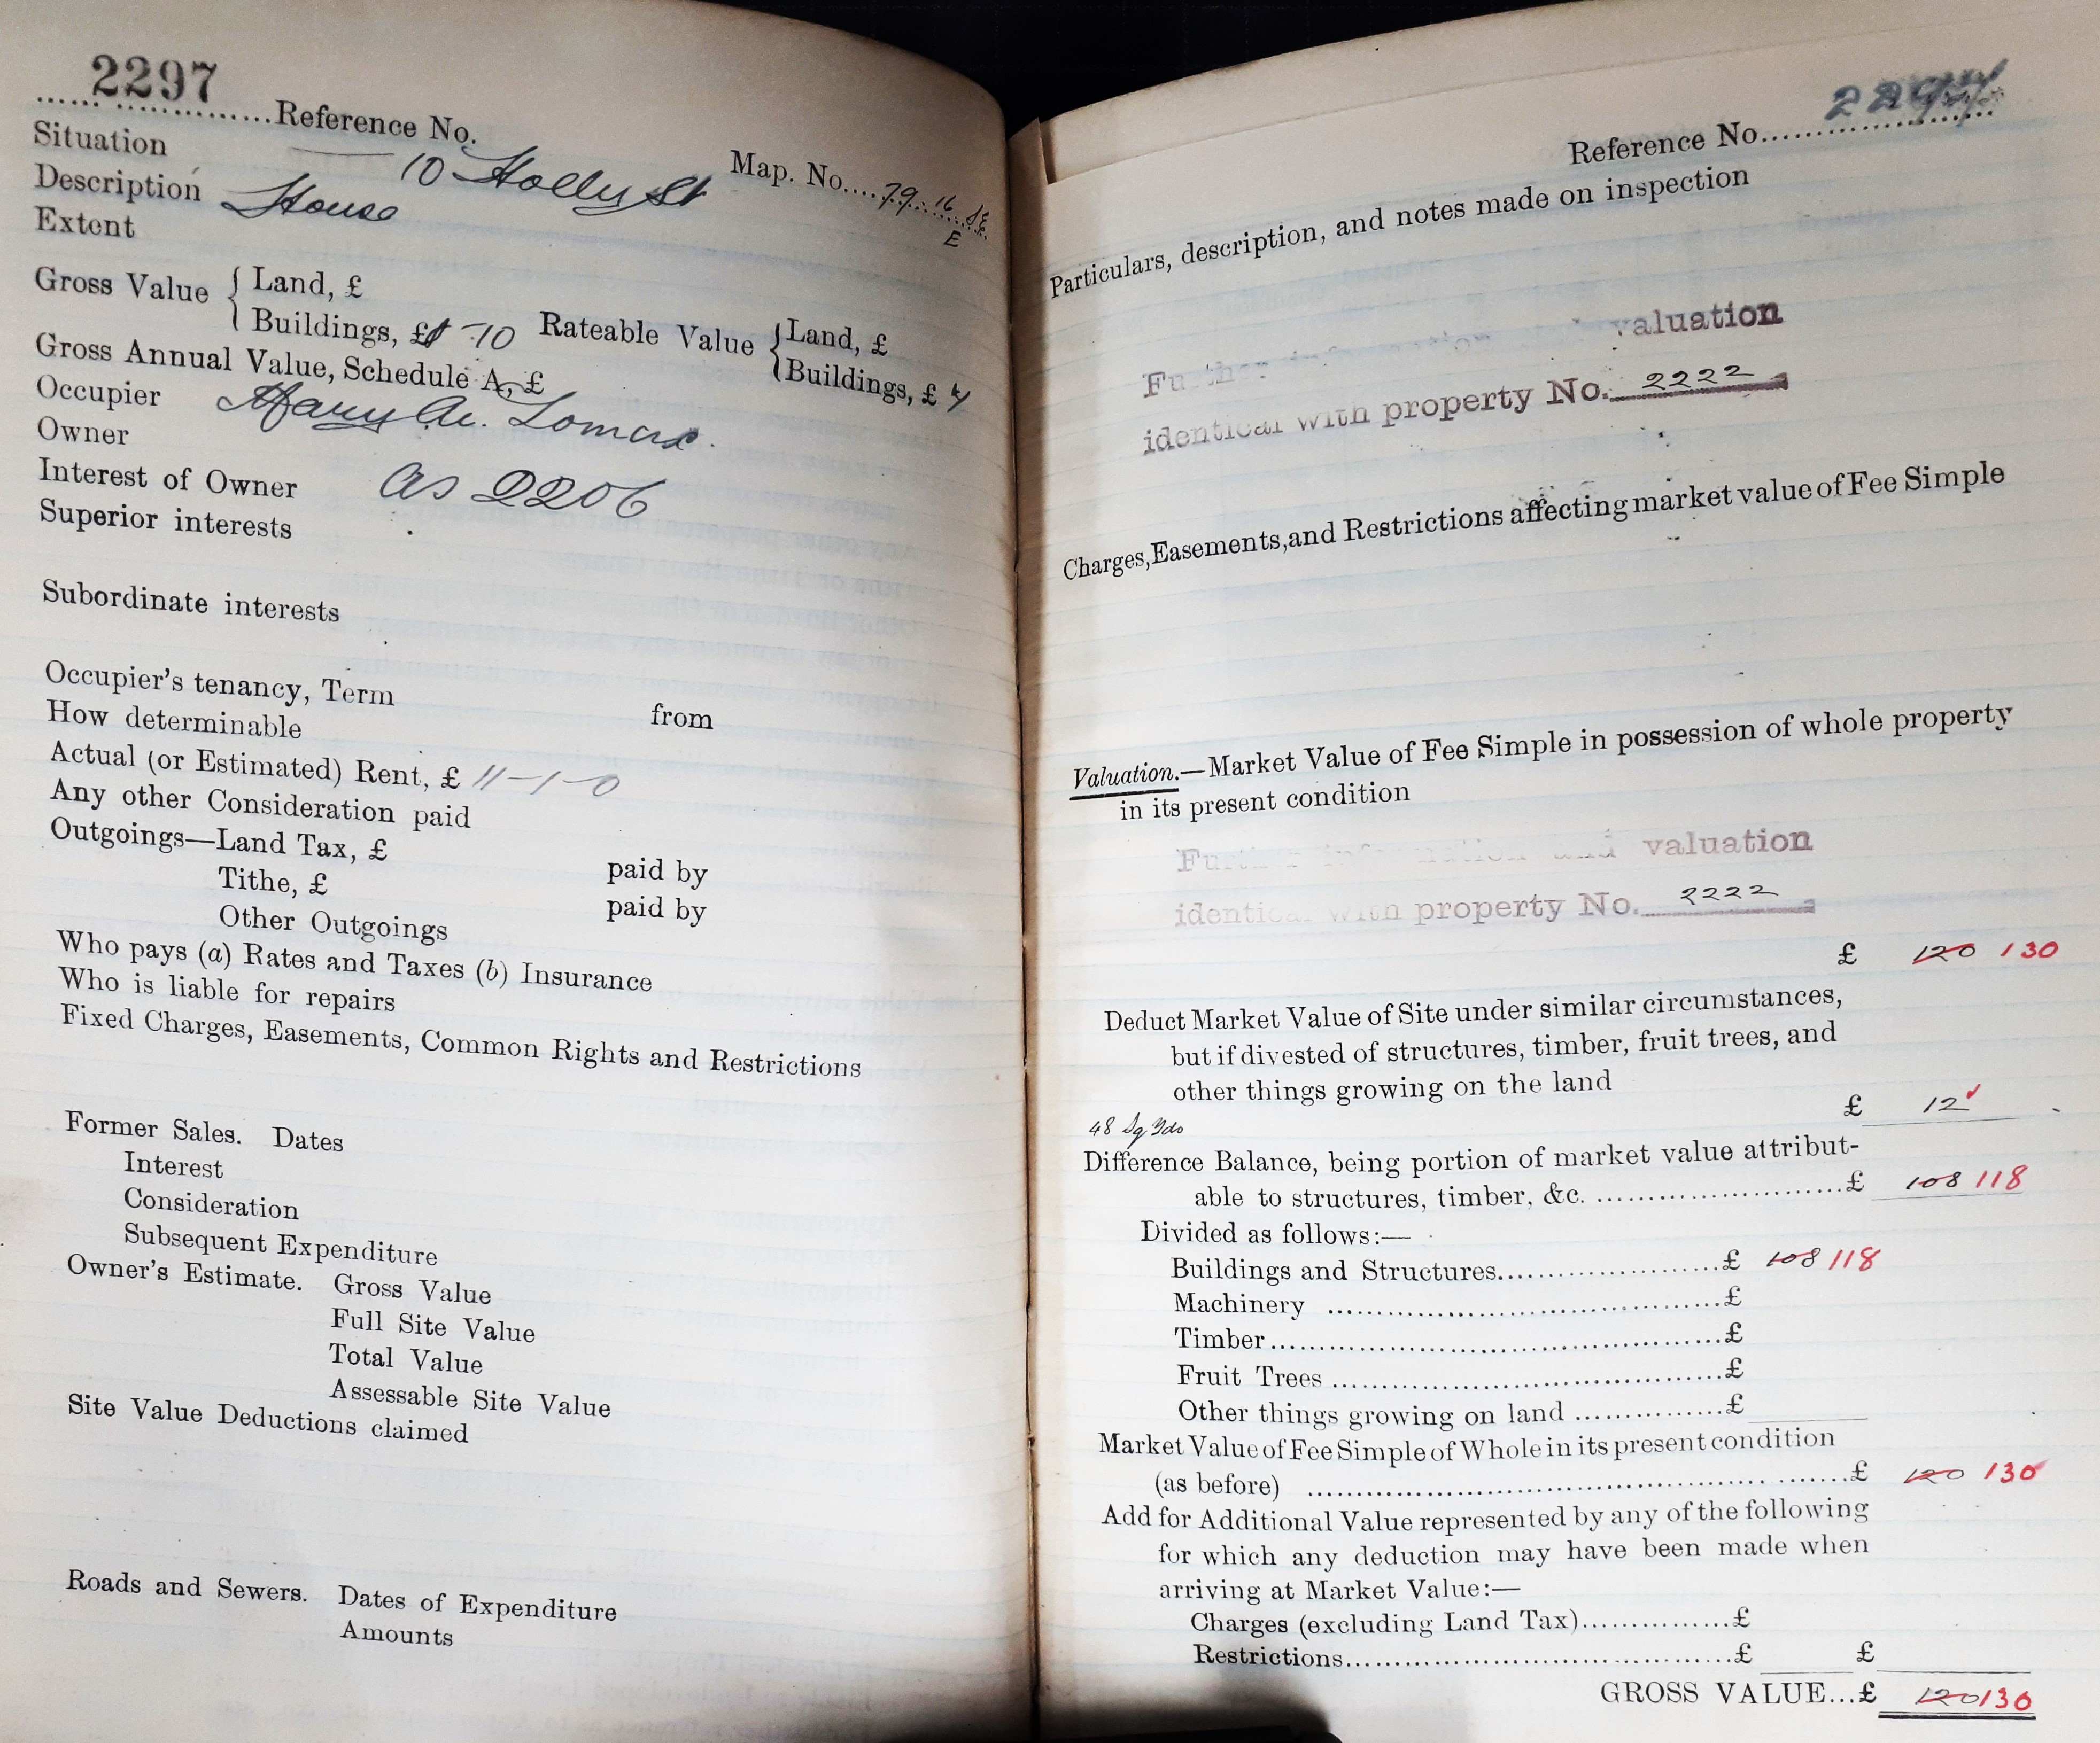 2297
...... ................Reference No.
Situation 10 Holly St Map. No....79.16 SE
E
Description House
Extent
Gross Value { Land, £
Buildings, £ 10 Rateable Value { Land, £
Buildings, £
Gross Annual Value, Schedule A, £
Occupier Mary A. Lomax.
Owner
Interest of Owner as 2206
Superior interests
Subordinate interests
Occupier's tenancy, Term from
How determinable
Actual (or Estimated) Rent, £ 11-1-0
Any other Consideration paid
Outgoings—Land Tax, £ paid by
Tithe, £ paid by
Other Outgoings
Who pays (a) Rates and Taxes (b) Insurance
Who is liable for repairs
Fixed Charges, Easements, Common Rights and Restrictions
Former Sales. Dates
Interest
Consideration
Subsequent Expenditure
Owner's Estimate. Gross Value
Full Site Value
Total Value
Assessable Site Value
Site Value Deductions claimed
Roads and Sewers. Dates of Expenditure
Amounts
Reference No.....................
Particulars, description, and notes made on inspection
Further valuation
identical with property No. 2222
Charges, Easements, and Restrictions affecting market value of Fee Simple
Valuation.—Market Value of Fee Simple in possession of whole property
in its present condition
Further information and valuation
identical with property No. 2222
£ 120 130
Deduct Market Value of Site under similar circumstances,
but if divested of structures, timber, fruit trees, and
other things growing on the land
£ 12
48 Sq Yds
Difference Balance, being portion of market value attribut-
able to structures, timber, &c. ..........................£ 108 118
Divided as follows:—
Buildings and Structures.......................£ 108 118
Machinery .........................................£
Timber...............................................£
Fruit Trees .........................................£
Other things growing on land ................£
Market Value of Fee Simple of Whole in its present condition
(as before) .........................................................£ 120 130
Add for Additional Value represented by any of the following
for which any deduction may have been made when
arriving at Market Value:—
Charges (excluding Land Tax)................£
Restrictions.........................................£ £
GROSS VALUE...£ 120 130